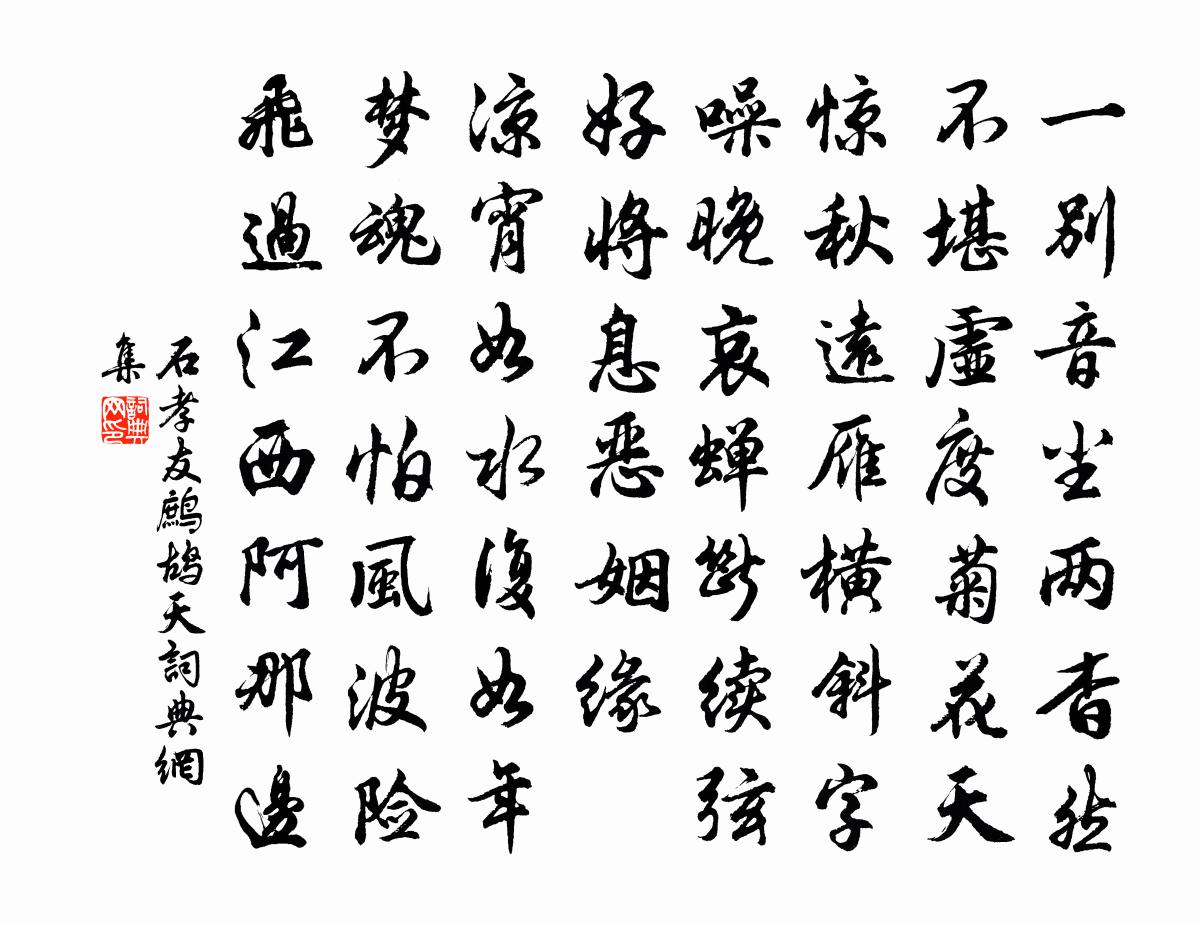 一别音尘两杳然
不堪虚度菊花天
惊秋远雁横斜字
噪晚哀蝉断续弦
好将息恶姻缘
凉宵如水复如年
梦魂不怕風波险
飛過江西阿那邊
石孝友鷓鴣天詞典網
集
詞典網印